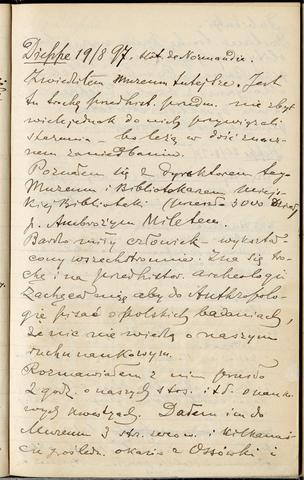 Dieppe 19/8 97. Hot. de Normandie.
Zwiedziłem muzeum tutejsze. Jest
tu trochę przedhist. przedm. nie zbyt
wiele jednak do nich przywiązali
starania – bo leżą w dość znacz-
nem zaniedbaniu.
Poznałem się z dyrektorem tego
Muzeum i Bibliotekarzem miejs-
kiej Biblioteki (przeszło 3000
p. Ambrożym Miletem.
Bardzo miły człowiek – wykształ-
cony wszechstronnie. Zna się tro-
chę i na przedhistor. archeologii
Zachęcał mię aby do Anthropolo-
gie pisać o polskich badaniach,
że nic nie wiedzą o naszym
ruchu naukowym.
Rozmawiałem z nim przeszło
2 godz. o naszych stos. i t.d. o nauko-
wych kwestyach. Dałem im do
Muzeum 3 i kilkanaś-
cie pośledn. okazów z Ossówki i